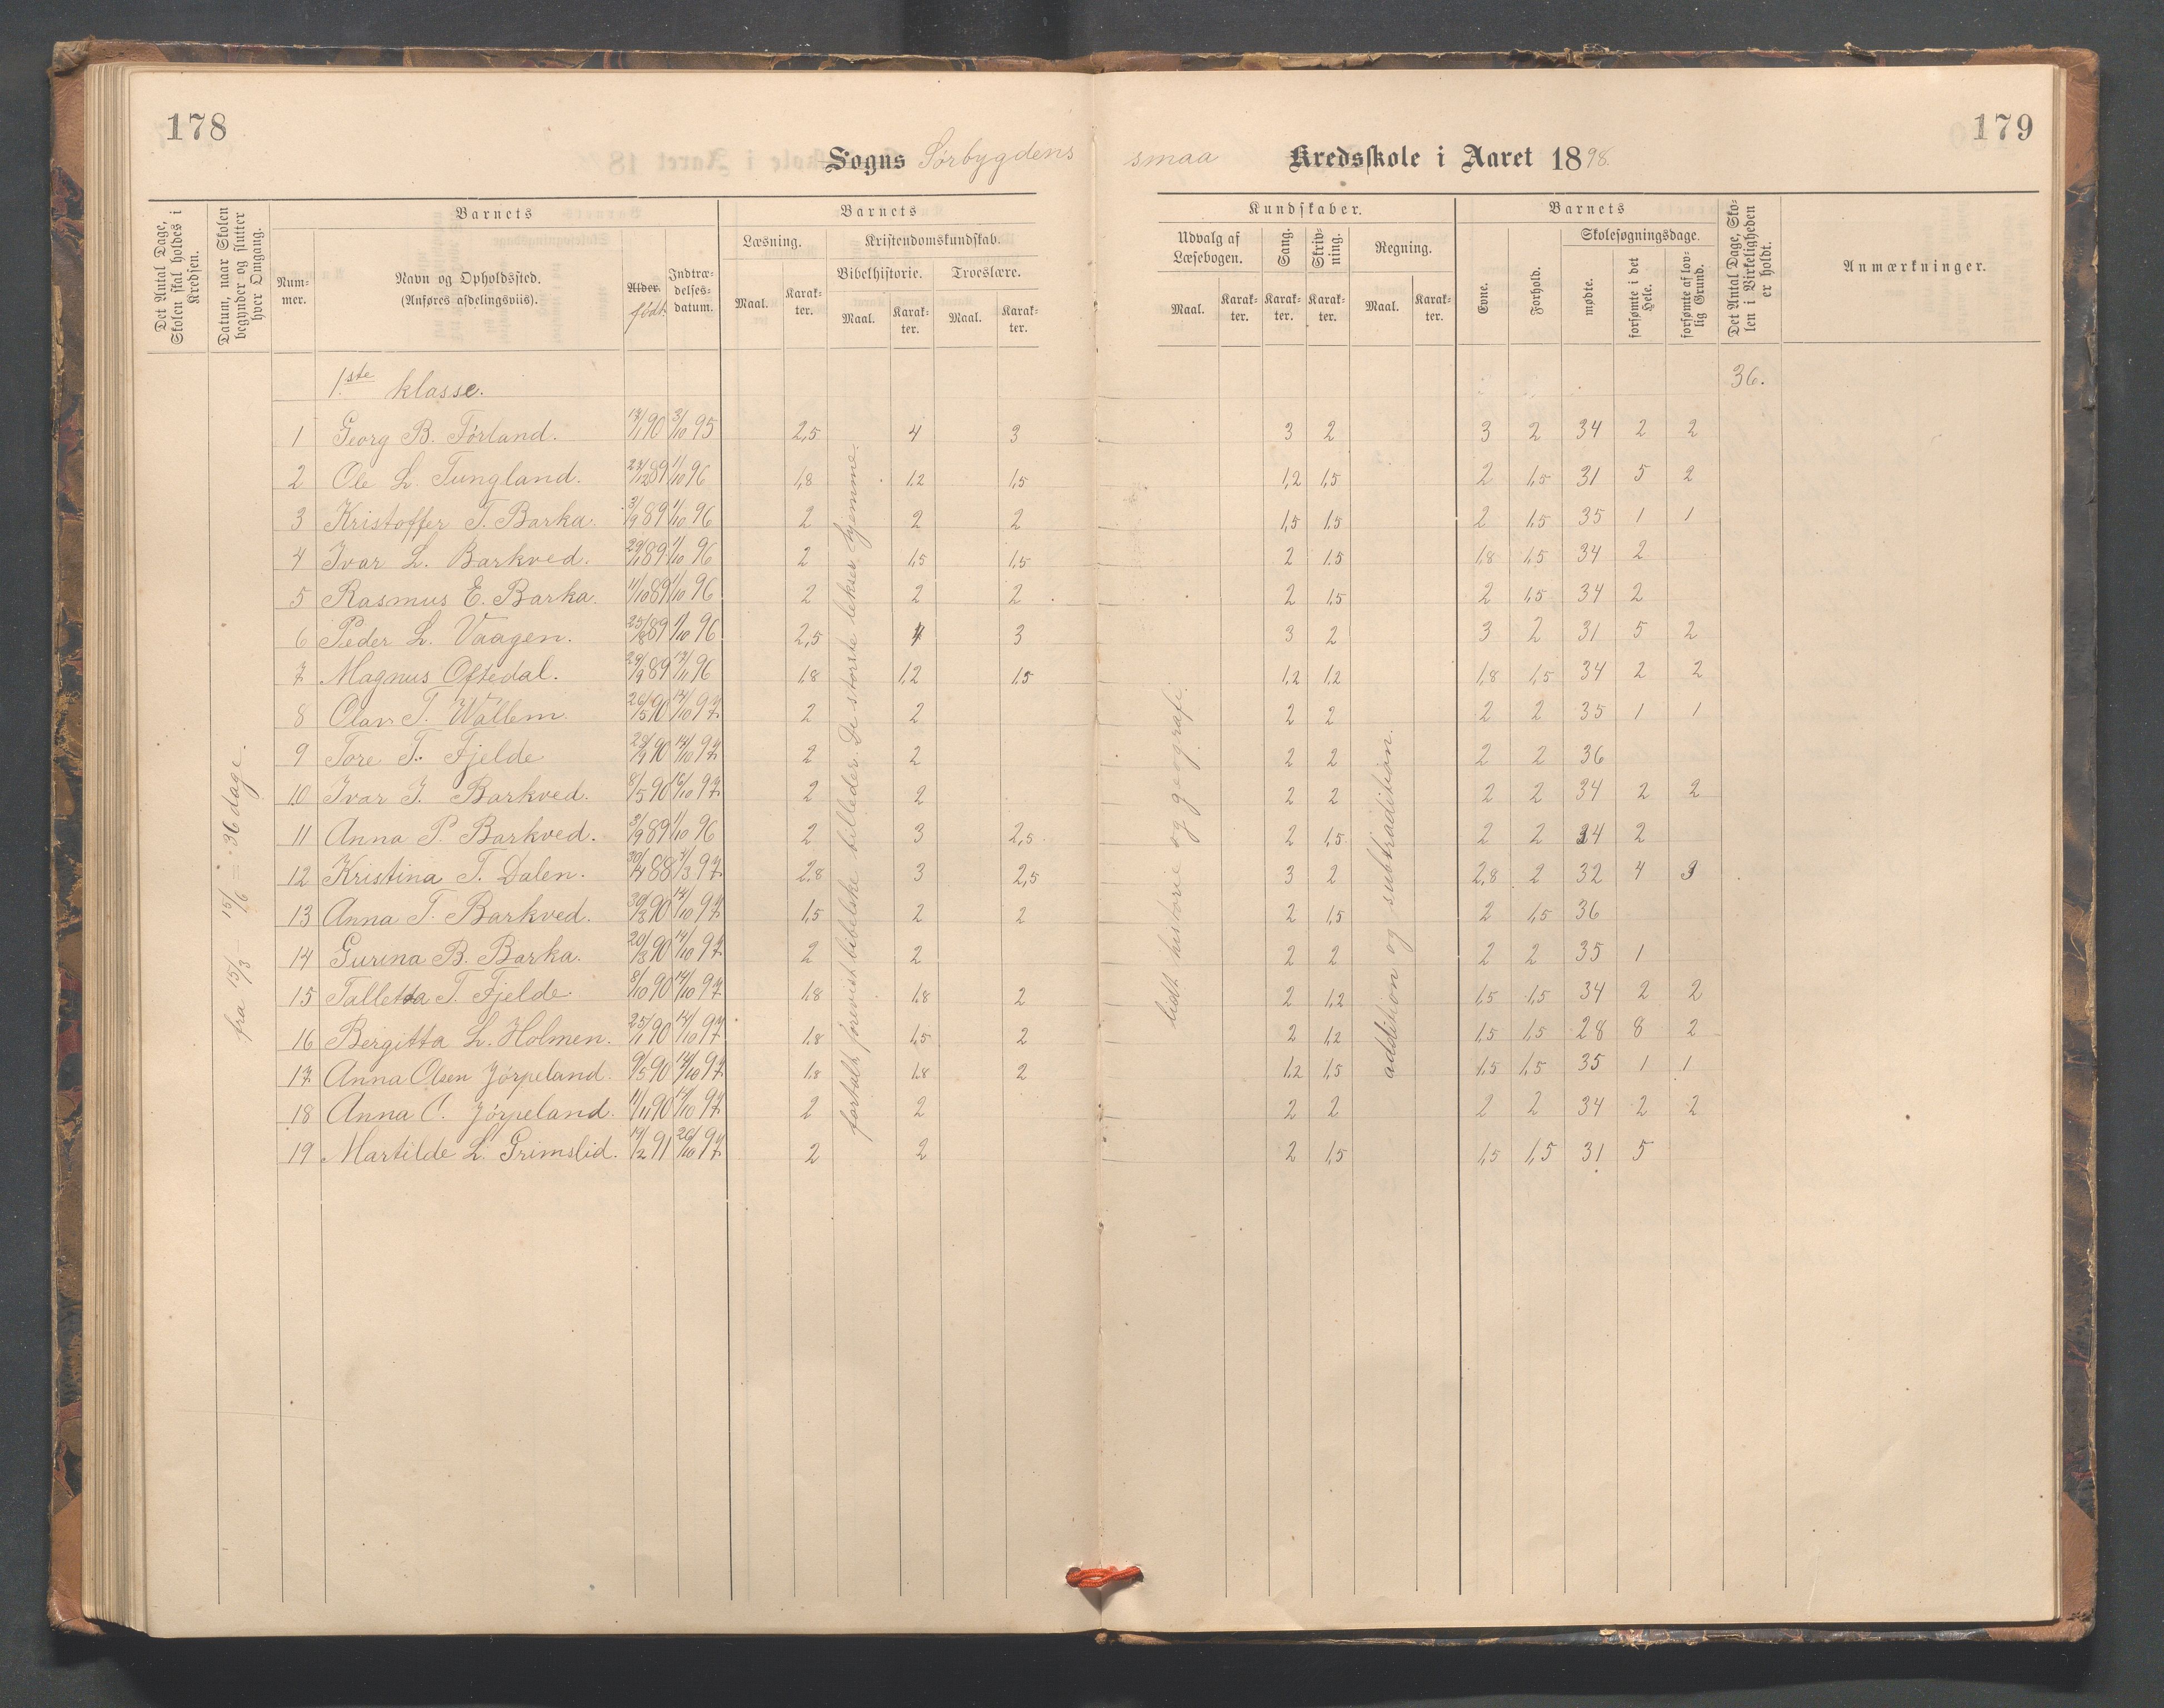 178
179
Sogns Sørbygdens smaa Kredsskole i Aaret 1898.
Det Antal Dage, Skolen skal holdes i Kredsen.
Datum, naar Skolen begynder og slutter hver Omgang.
Barnets
Nummer.
Navn og Opholdssted.
(Anføres afdelingsviis).
Alder.
født.
Indtrædelsesdatum.
Barnets
Læsning.
Kristendomskundskab.
Bibelhistorie.
Troeslære.
Maal.
Karakter.
Maal.
Karakter.
Maal.
Karakter.
Kundskaber.
Udvalg af Læsebogen.
Sang.
Skrivning.
Regning.
Maal.
Karakter.
Karakter.
Karakter.
Maal.
Karakter.
Barnets
Evne.
Forhold.
Skolesøgningsdage.
mødte.
forsømte i det Hele.
forsømte af lovlig Grund.
Det Antal Dage, Skolen i Virkeligheden er holdt.
Anmærkninger.
fra 15/3 - 15/6 = 36 dage.
1.ste klasse. 36.
1 Georg B. Førland. 13/1 90 3/10 95 2,5 4 3 3 2 3 2 34 2 2
2 Ole L. Tungland. 23/12 89 1/10 96 1,8 1,2 1,5 1,2 1,5 2 1,5 31 5 2
3 Kristoffer T. Barka. 3/9 89 1/10 96 2 2 2 1,5 1,5 2 1,5 35 1 1
4 Ivar L. Barkved. 29/1 89 1/10 96 2 1,5 1,5 2 1.5 1,8 1,5 34 2
5 Rasmus E. Barka. 11/10 89 1/10 96 2 2 2 2 1,5 2 1,5 34 2
6 Peder L. Vaagen. 25/8 89 1/10 96 2,5 4 3 3 2 3 2 31 5 2
7 Magnus Oftedal. 29/9 89 13/11 96 1,8 1,2 1,5 1,2 1,2 1,8 1,5 34 2 2
8 Olav T. Wållem. 26/5 90 14/10 97 2 2 2 2 2 2 35 1 1
9 Tore T. Fjelde 29/9 90 14/10 97 2 2 2 2 2 2 36
10 Ivar I. Barkved. 8/5 90 16/10 97 2 2 2 2 2 2 34 2 2
11 Anna P. Barkved. 3/9 89 1/10 96 2 3 2,5 2 1,5 2 2 34 2
12 Kristina T. Dalen. 30/4 88 4/3 97 2,8 3 2,5 3 2 2,8 2 32 4 3
13 Anna T. Barkved. 30/3 90 14/10 97 1,5 2 2 2 1,5 2 1,5 36
14 Gurina B. Barka. 20/3 90 14/10 97 2 2 2 2 2 2 35 1
15 Talletta T. Fjelde. 8/10 90 14/10 97 1,8 1,8 2 2 1,2 1,5 1,5 34 2 2
16 Bergitta L. Holmen. 25/1 90 14/10 97 1,8 1,5 2 2 1,2 1,5 1,5 28 8 2
17 Anna Olsen Jørpeland. 9/5 90 14/10 97 1,8 1,8 2 1,2 1,5 1,5 1,5 35 1 1
18 Anna O. Jørpeland. 11/11 90 14/10 97 2 2 2 2 2 2 34 2 2
19 Martilde L. Grimslid. 19/2 91 26/10 97 2 2 2 1,5 1,5 1,5 31 5
fortalt, forevist bibelske billeder. De største lekser hjemme.
lidt historie og geografi.
addition og subtradition.